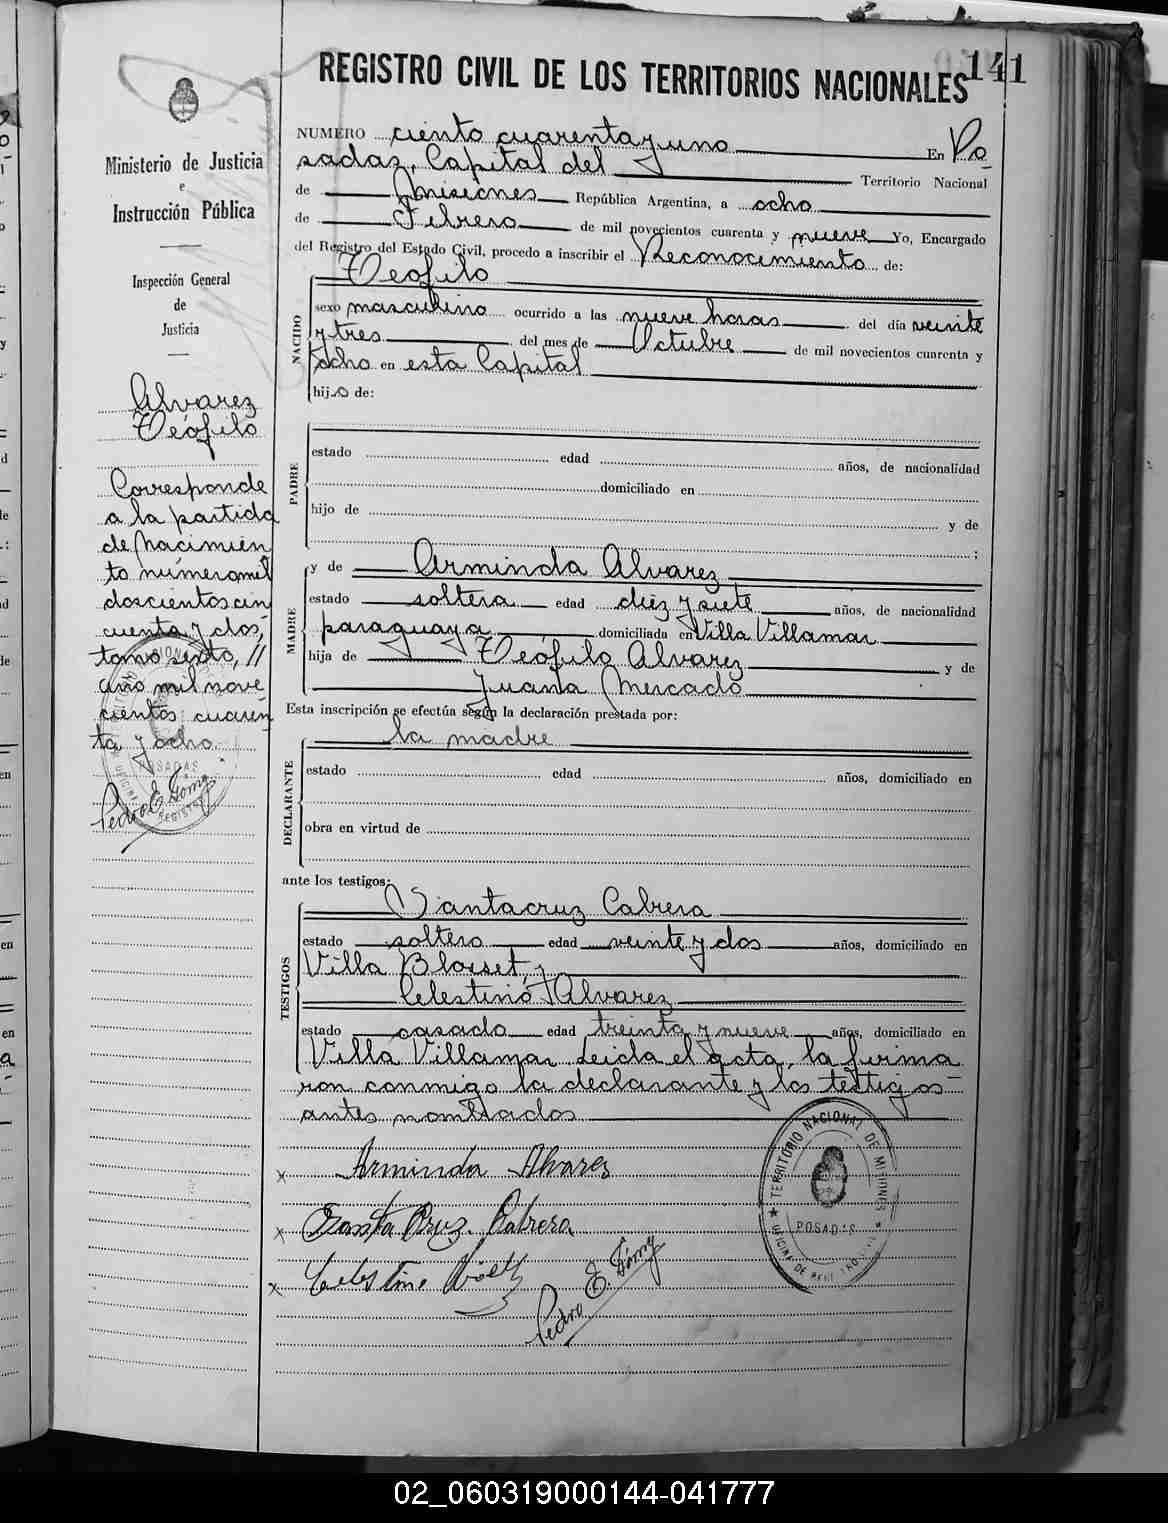 141
REGISTRO CIVIL DE LOS TERRITORIOS NACIONALES
Ministerio de Justicia
e
Instrucción Pública
Inspección General
de
Justicia
Alvarez
Teófilo
Corresponde
a la partida
de nacimien
to número mil
doscientos cin
cuenta y dos,
tomo sexto, //
año mil nove
cientos cuaren
ta y ocho
POSADAS
NUMERO ciento cuarenta y uno En Po
sadas, Capital del Territorio Nacional
de Misiones República Argentina, a ocho
de Febrero de mil novecientos cuarenta y nueve Yo, Encargado
del Registro del Estado Civil, procedo a inscribir el Reconocimiento de:
NACIDO
Teófilo
sexo masculino ocurrido a las nueve horas del día veinte
y tres del mes de Octubre de mil novecientos cuarenta y
ocho en esta Capital
hijo de:
PADRE
estado edad años, de nacionalidad
domiciliado en
hijo de y de
;
MADRE
y de Arminda Alvarez
estado soltera edad diez y siete años, de nacionalidad
paraguaya domiciliada en Villa Villamar
hija de Teófilo Alvarez y de
Juana Mercado
Esta inscripción se efectúa según la declaración prestada por:
DECLARANTE
la madre
estado edad años, domiciliado en
obra en virtud de
ante los testigos:
TESTIGOS
Santacruz Cabrera
estado soltero edad veinte y dos años, domiciliado en
Villa Blosset, y
Celestino Alvarez
estado casado edad treinta y nueve años, domiciliado en
Villa Villamar. Leida el acta, la firma
ron conmigo la declarante y los testigos
antes nombrados
x Arminda Alvarez
x Santa Cruz Cabrera
x Celestino
Pedro E.
TERRITORIO NACIONAL DE MISIONES
POSADAS
02_060319000144-041777